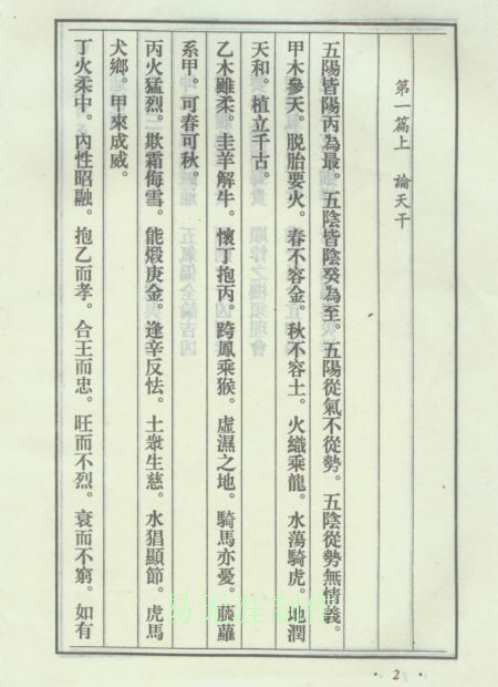 第一篇上　論天干
五陽皆陽丙為最。五陰皆陰癸為至。五陽從氣不從勢。五陰從勢無情義。
甲木參天。脱胎要火。春不容金。秋不容土。火熾乘龍。水蕩騎虎。地潤
天和。植立千古。
乙木雖柔。圭羊解牛。懷丁抱丙。跨鳳乘猴。虛濕之地。騎馬亦憂。藤蘿
系甲。可春可秋。
丙火猛烈。欺霜侮雪。能煅庚金。逢辛反怯。土衆生慈。水猖顯節。虎馬
犬鄉。甲來成威。
丁火柔中。內性昭融。抱乙而孝。合王而忠。旺而不烈。衰而不窮。如有
· 2 ·